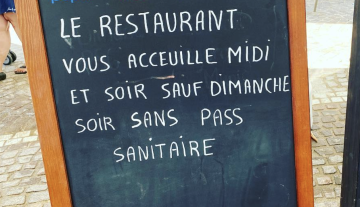 LE RESTAURANT
VOUS ACCEUILLE MIDI
ET SOIR SAUF DIMANCHE
SOIR SANS PASS
SANITAIRE